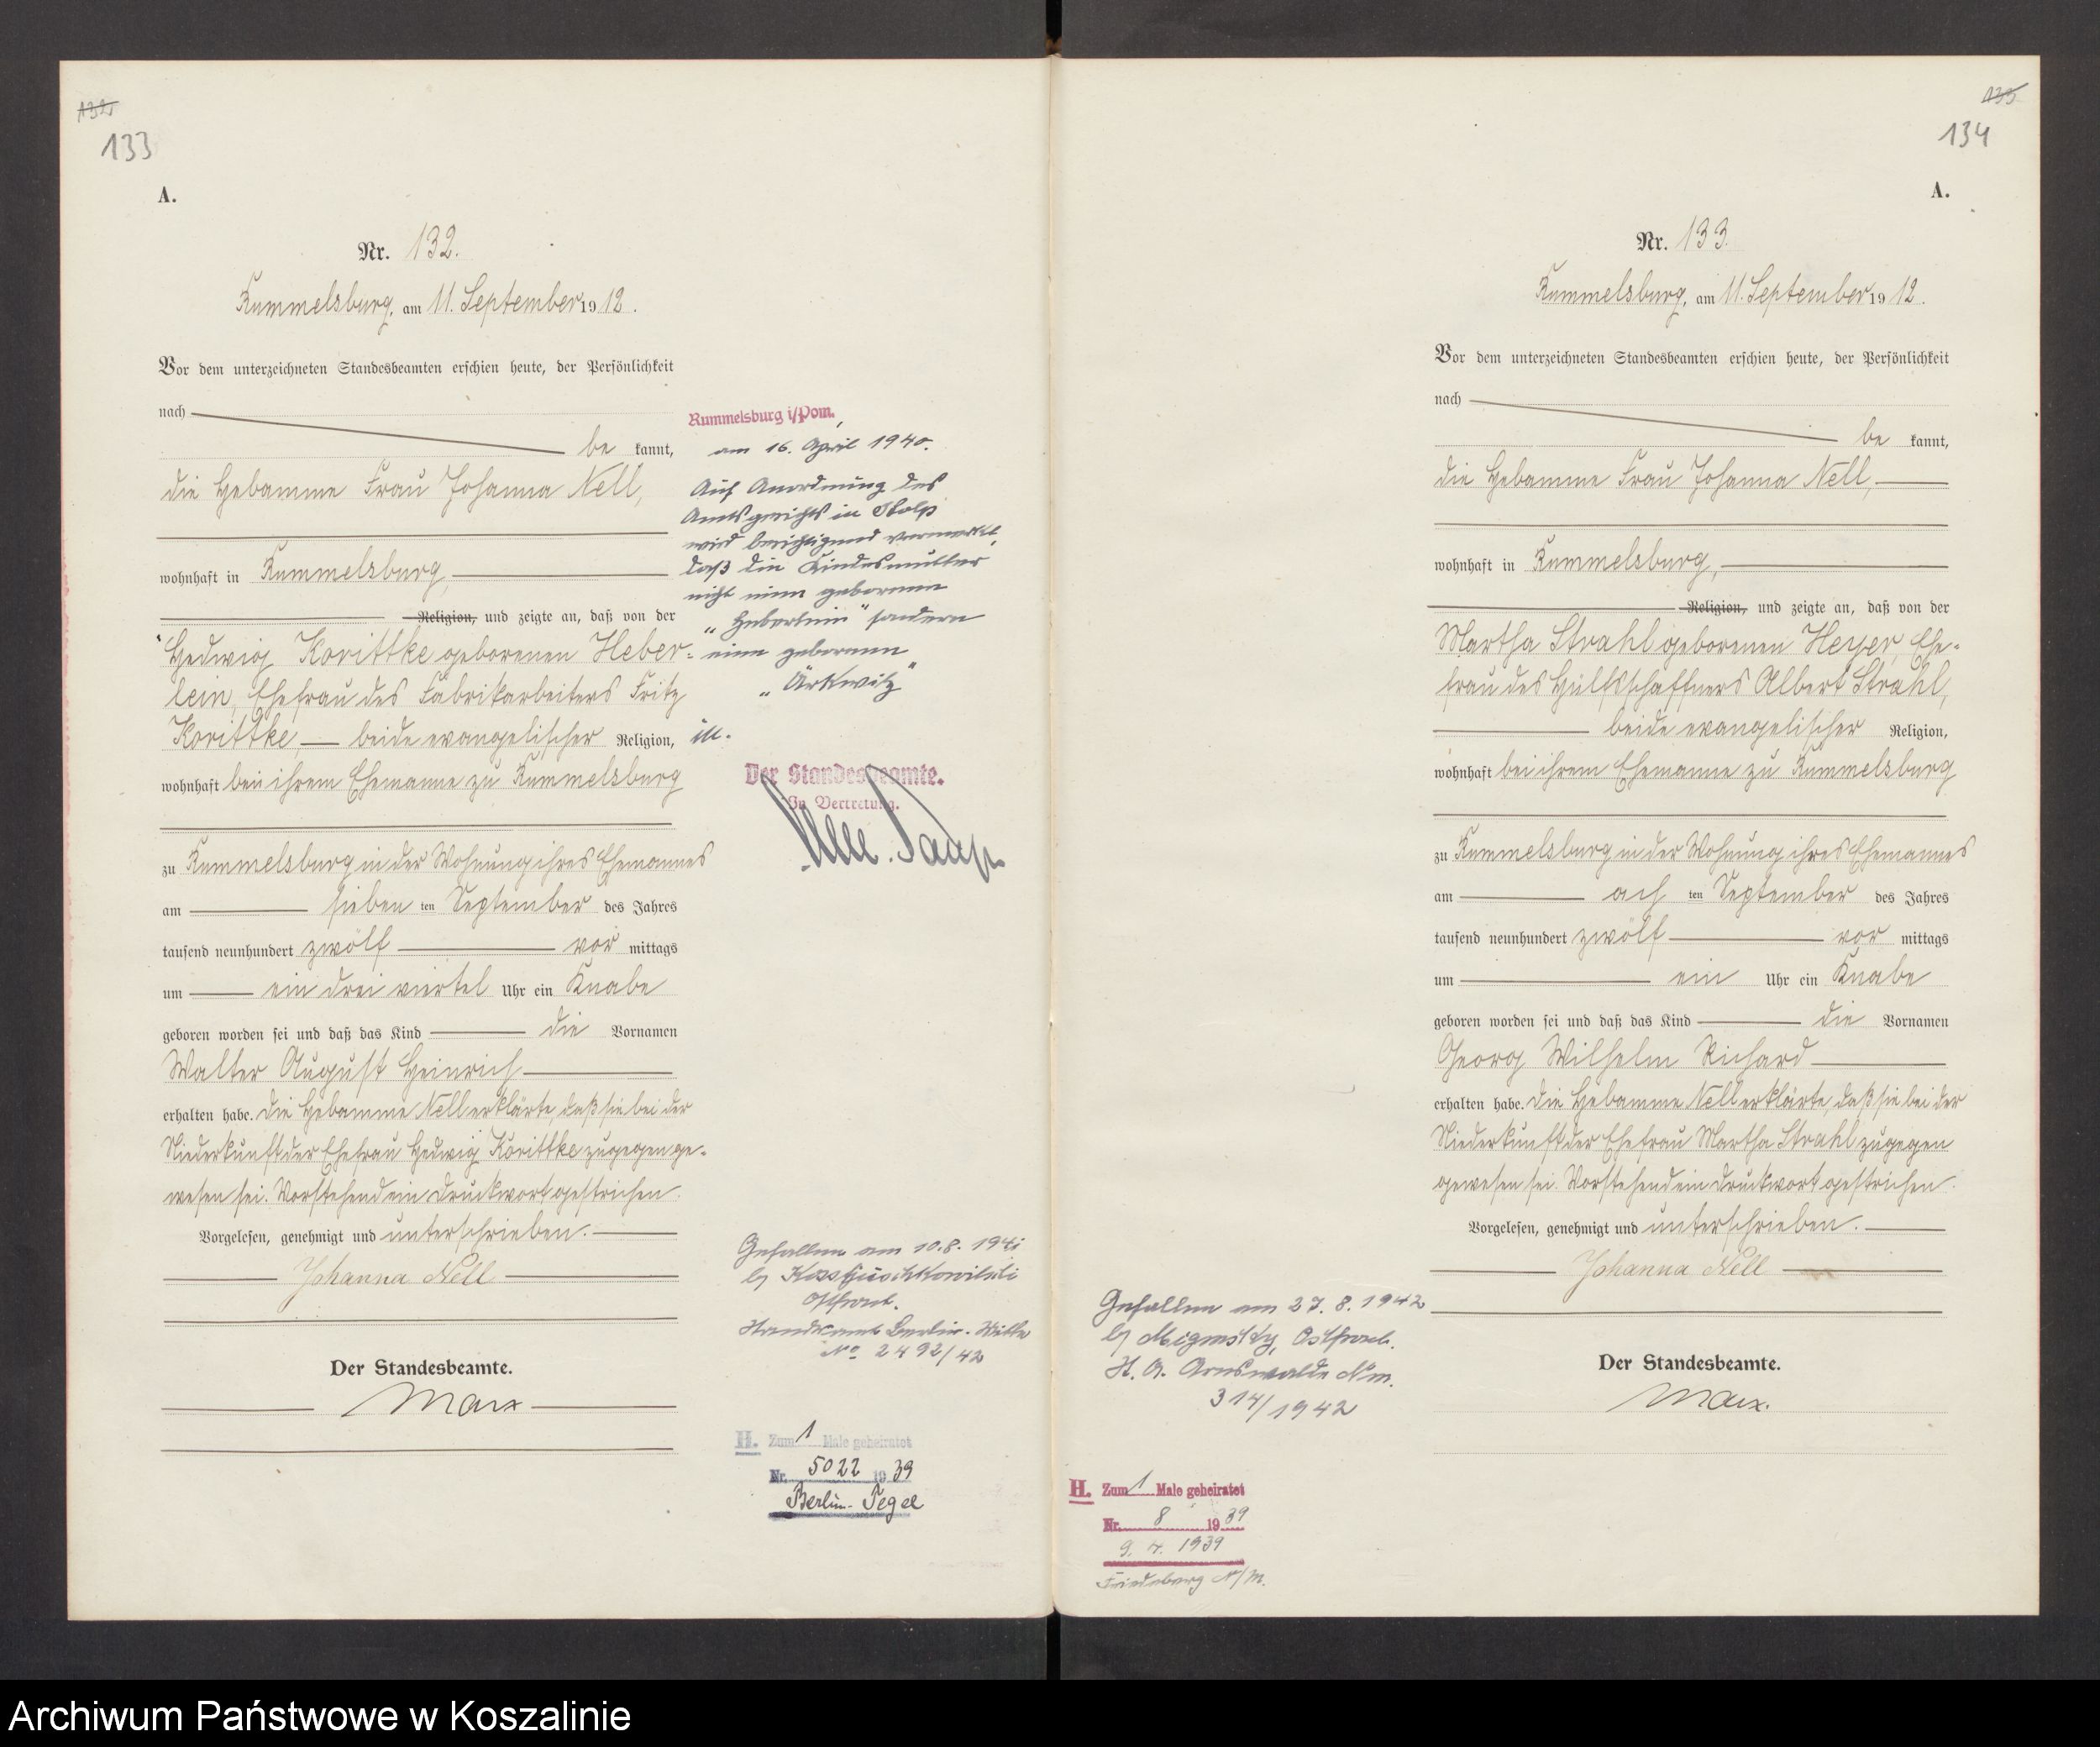 132
133
A.
Nr. 132.
Rummelsburg, am 11. September 1912.
Vor dem unterzeichneten Standesbeamten erschien heute, der Persönlichkeit
nach
be kannt,
die Hebamme Frau Johanna Nell,
wohnhaft in Rummelsburg,
Religion, und zeigte an, daß von der
Hedwig Korittke geborenen Heber-
lein, Ehefrau des Fabrikarbeiters Fritz
Korittke, beide evangelischer Religion,
wohnhaft bei ihrem Ehemanne zu Rummelsburg
zu Rummelsburg in der Wohnung ihres Ehemannes
am sieben ten September des Jahres
tausend neunhundert zwölf vor mittags
um ein drei viertel Uhr ein Knabe
geboren worden sei und daß das Kind die Vornamen
Walter August Heinrich
erhalten habe. Die Hebamme Nell erklärte, daß sie bei der
Niederkunft der Ehefrau Hedwig Korittke zugegen ge-
wesen sei. Vorstehend ein Druckwort gestrichen.
Vorgelesen, genehmigt und unterschrieben.
Johanna Nell
Der Standesbeamte.
Marx
Rummelsburg i/Pom.,
am 16. April 1940.
Auf Anordnung des
Amtsgerichts in Stolp
wird berichtigend vermerkt,
daß die Kindesmutter
nicht eine geborene
„Heberlein" sondern
eine geborene
„Arkwitz"
ist.
Der Standesbeamte.
In Vertretung.
Gefallen am 10.8.1941
b/
Ostfront.
Standesamt Berlin-Mitte
No 2492/42
H. Zum 1 Male geheiratet
Nr. 5022 1939
Berlin-Tegel
133
134
A.
Nr. 133.
Rummelsburg, am 11. September 1912.
Vor dem unterzeichneten Standesbeamten erschien heute, der Persönlichkeit
nach
be kannt,
die Hebamme Frau Johanna Nell,
wohnhaft in Rummelsburg,
Religion, und zeigte an, daß von der
Martha Strahl geborenen Heyer, Ehe-
frau des Hülfsschaffners Albert Strahl,
beide evangelischer Religion,
wohnhaft bei ihrem Ehemanne zu Rummelsburg
zu Rummelsburg in der Wohnung ihres Ehemannes
am ach ten September des Jahres
tausend neunhundert zwölf vor mittags
um ein Uhr ein Knabe
geboren worden sei und daß das Kind die Vornamen
Georg Wilhelm Richard
erhalten habe. Die Hebamme Nell erklärte, daß sie bei der
Niederkunft der Ehefrau Martha Strahl zugegen
gewesen sei. Vorstehend ein Druckwort gestrichen.
Vorgelesen, genehmigt und unterschrieben.
Johanna Nell
Der Standesbeamte.
Marx.
Gefallen am 27.8.1942
b/ Ostfront.
St. A. Arnswalde Nm.
314/1942
H. Zum 1 Male geheiratet
Nr. 8 1939
9. 4. 1939
Friedeberg N/M.
Archiwum Państwowe w Koszalinie